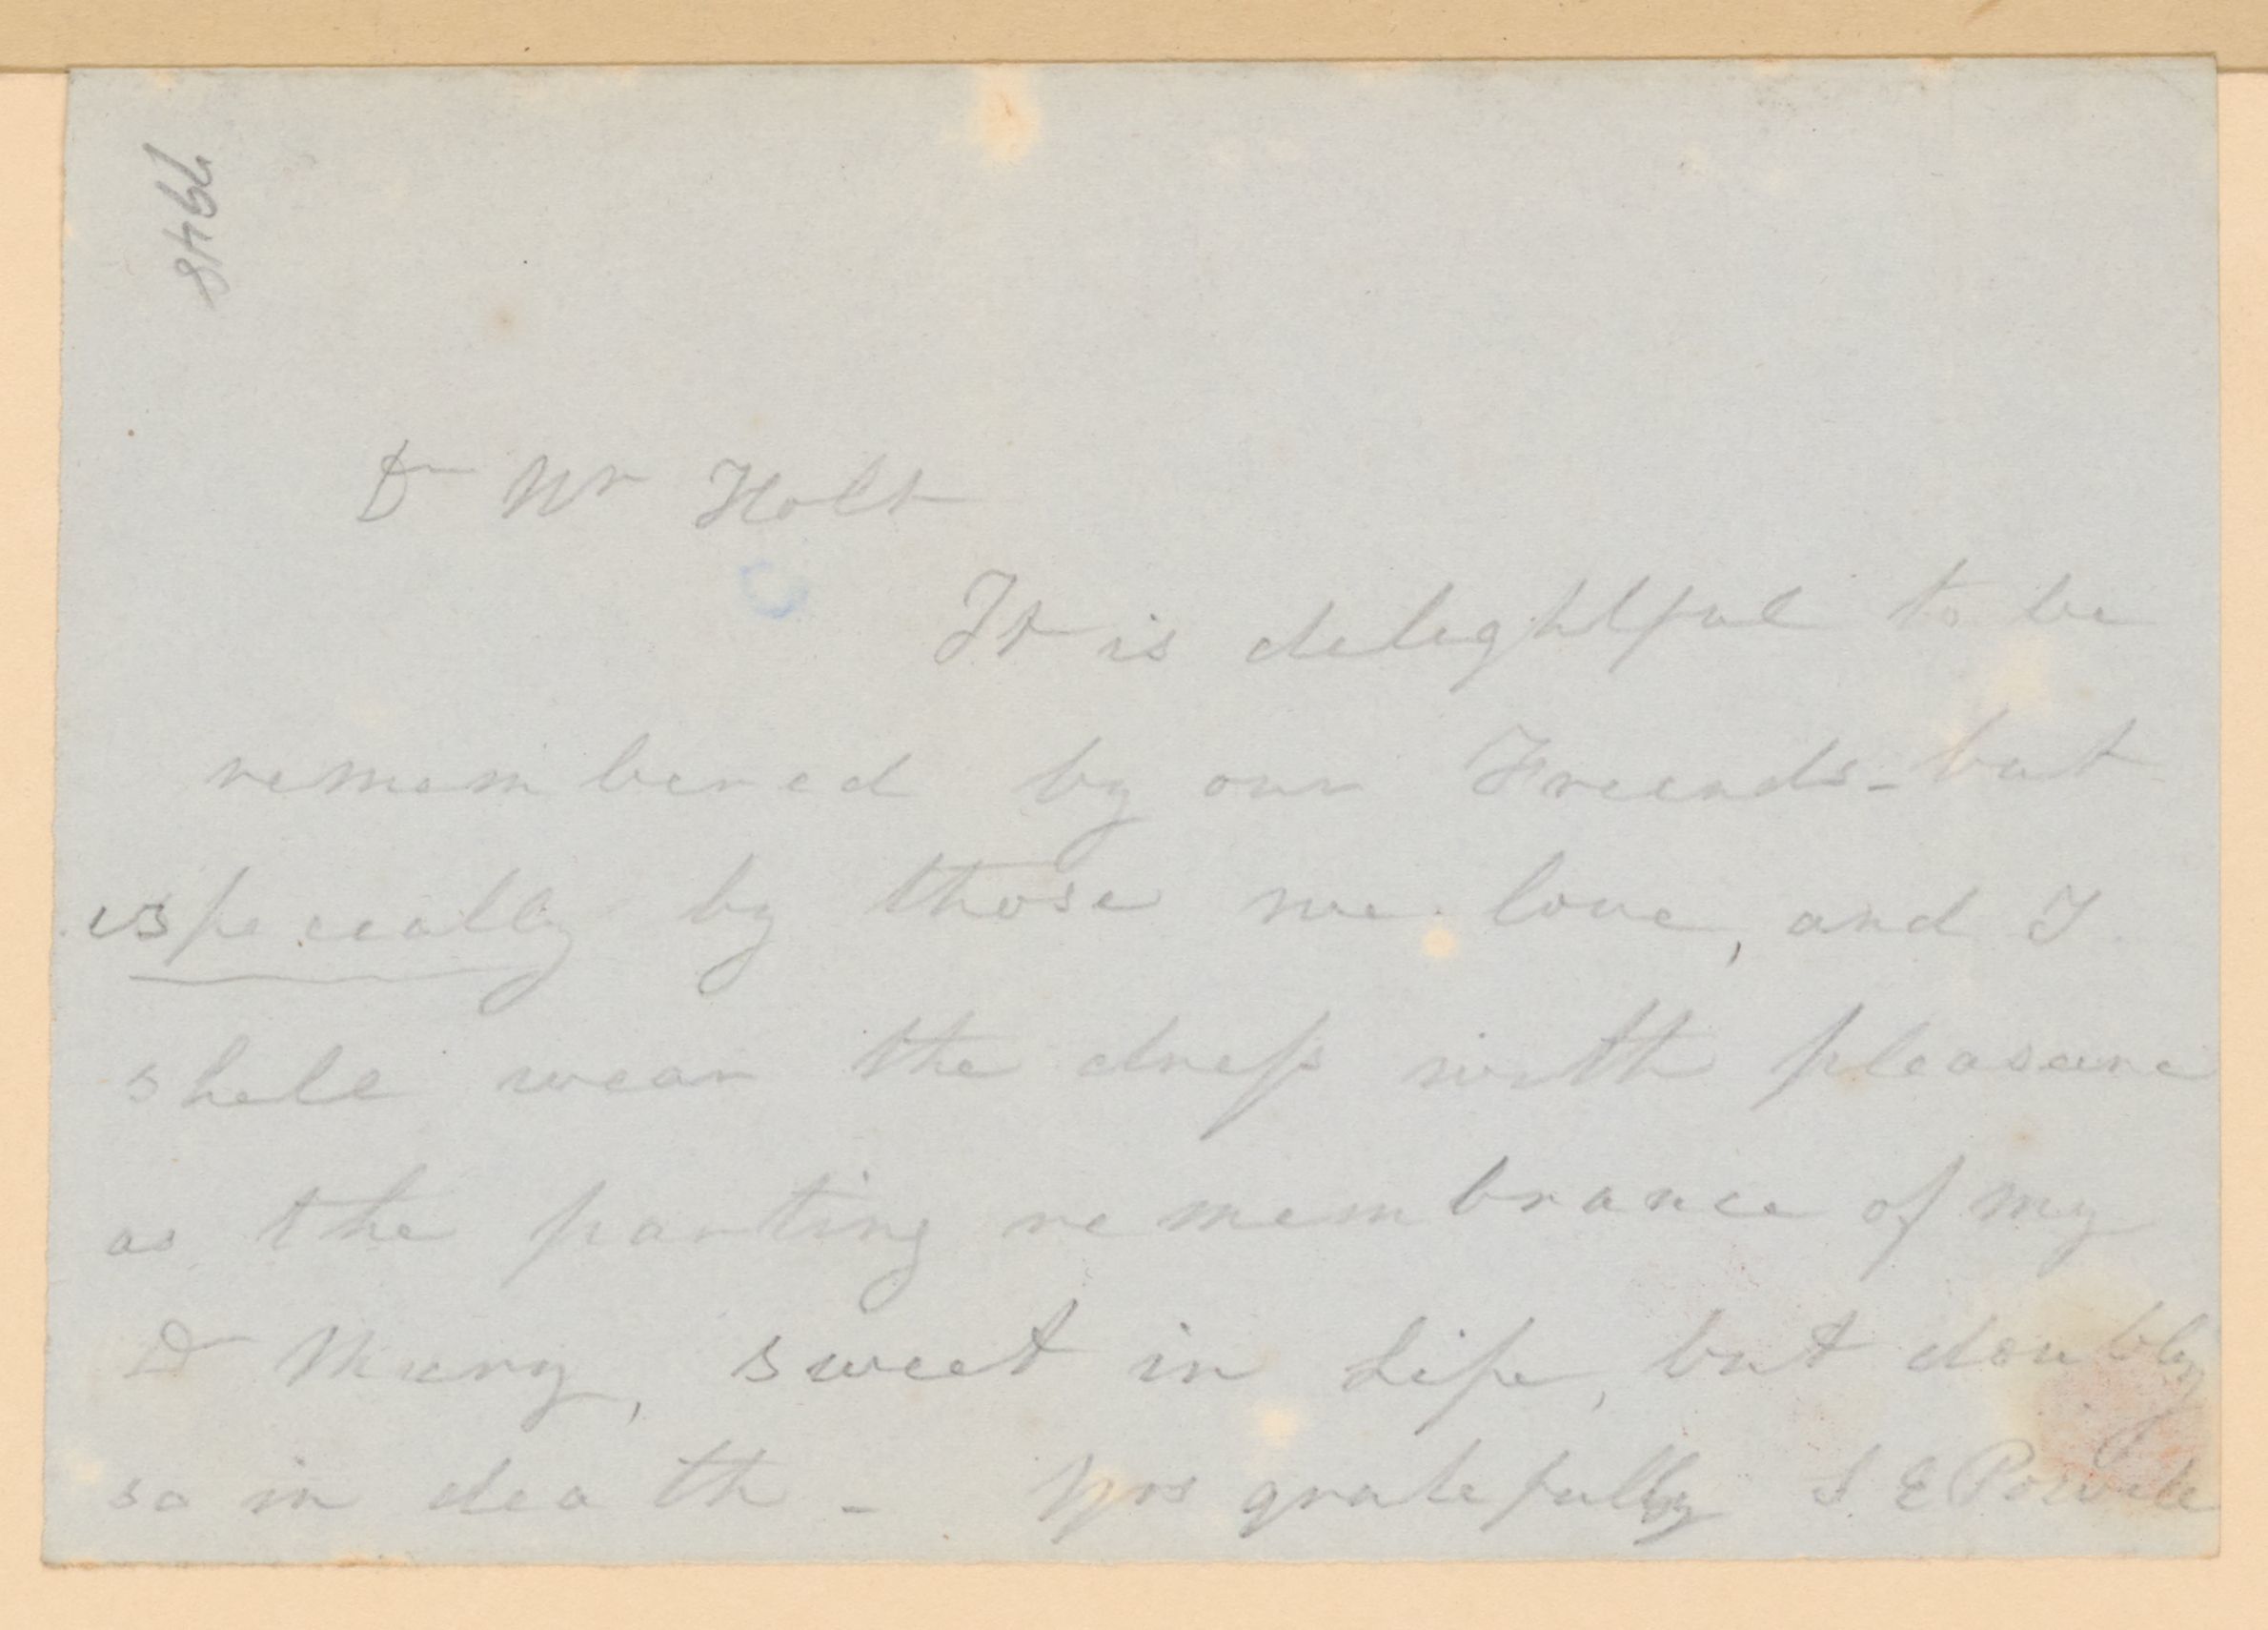 7948
Dr Mr Holt
It is delightful to be
remembered by our Friends - but
especially by those we love, and I
shall wear the dress with pleasure
as the parting remembrance of my
Dr Mary, sweet in life, but doubly
so in death - Yrs gratefully S E Powell